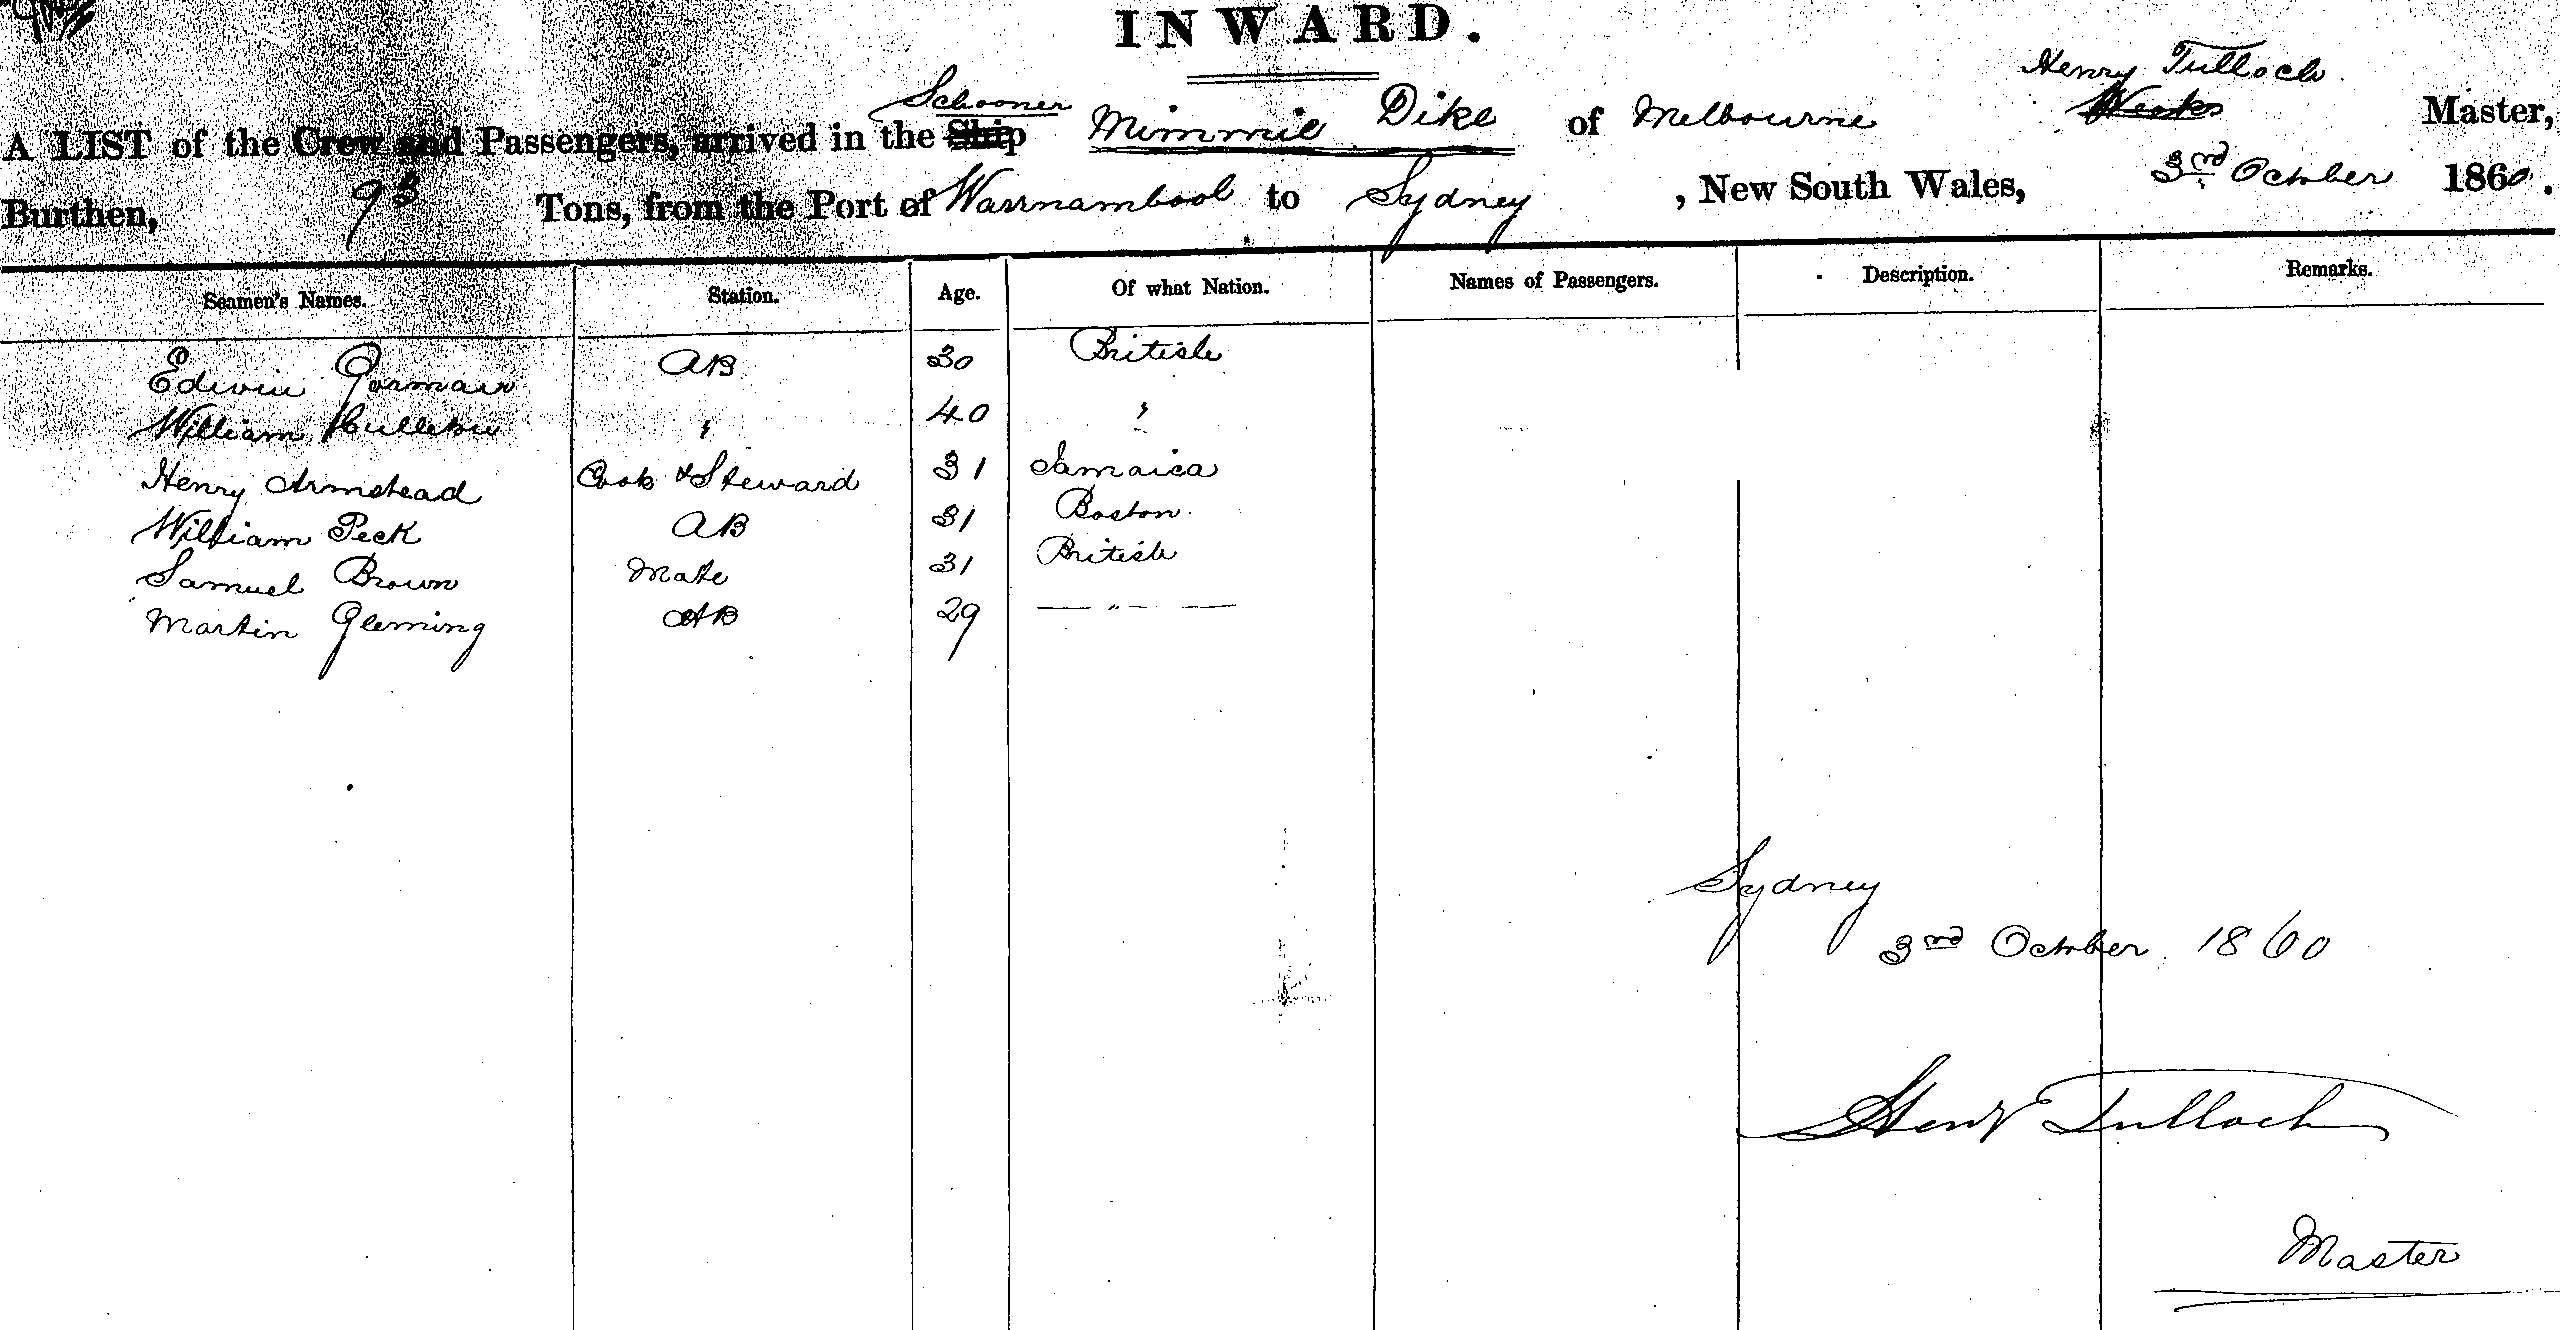 INWARD.
Henry Tulloch
Schooner
A LIST of the Crew and Passengers, arrived in the Ship Mimmie Dike of Melbourne Weeks Master,
Burthen, 93 Tons, from the Port of Warrnambool to Sydney , New South Wales, 3rd October 1860.
Seamen's Names. Station. Age. Of what Nation. Names of Passengers. Description. Remarks.
Edwin Gorman AB 30 British
William " 40 "
Henry Armstead Cook & Steward 31 Jamaica
William Peck AB 31 Boston
Samuel Brown Mate 31 British
Martin Gleming AB 29 — " —
Sydney
3rd October 1860
Henry Tulloch
Master